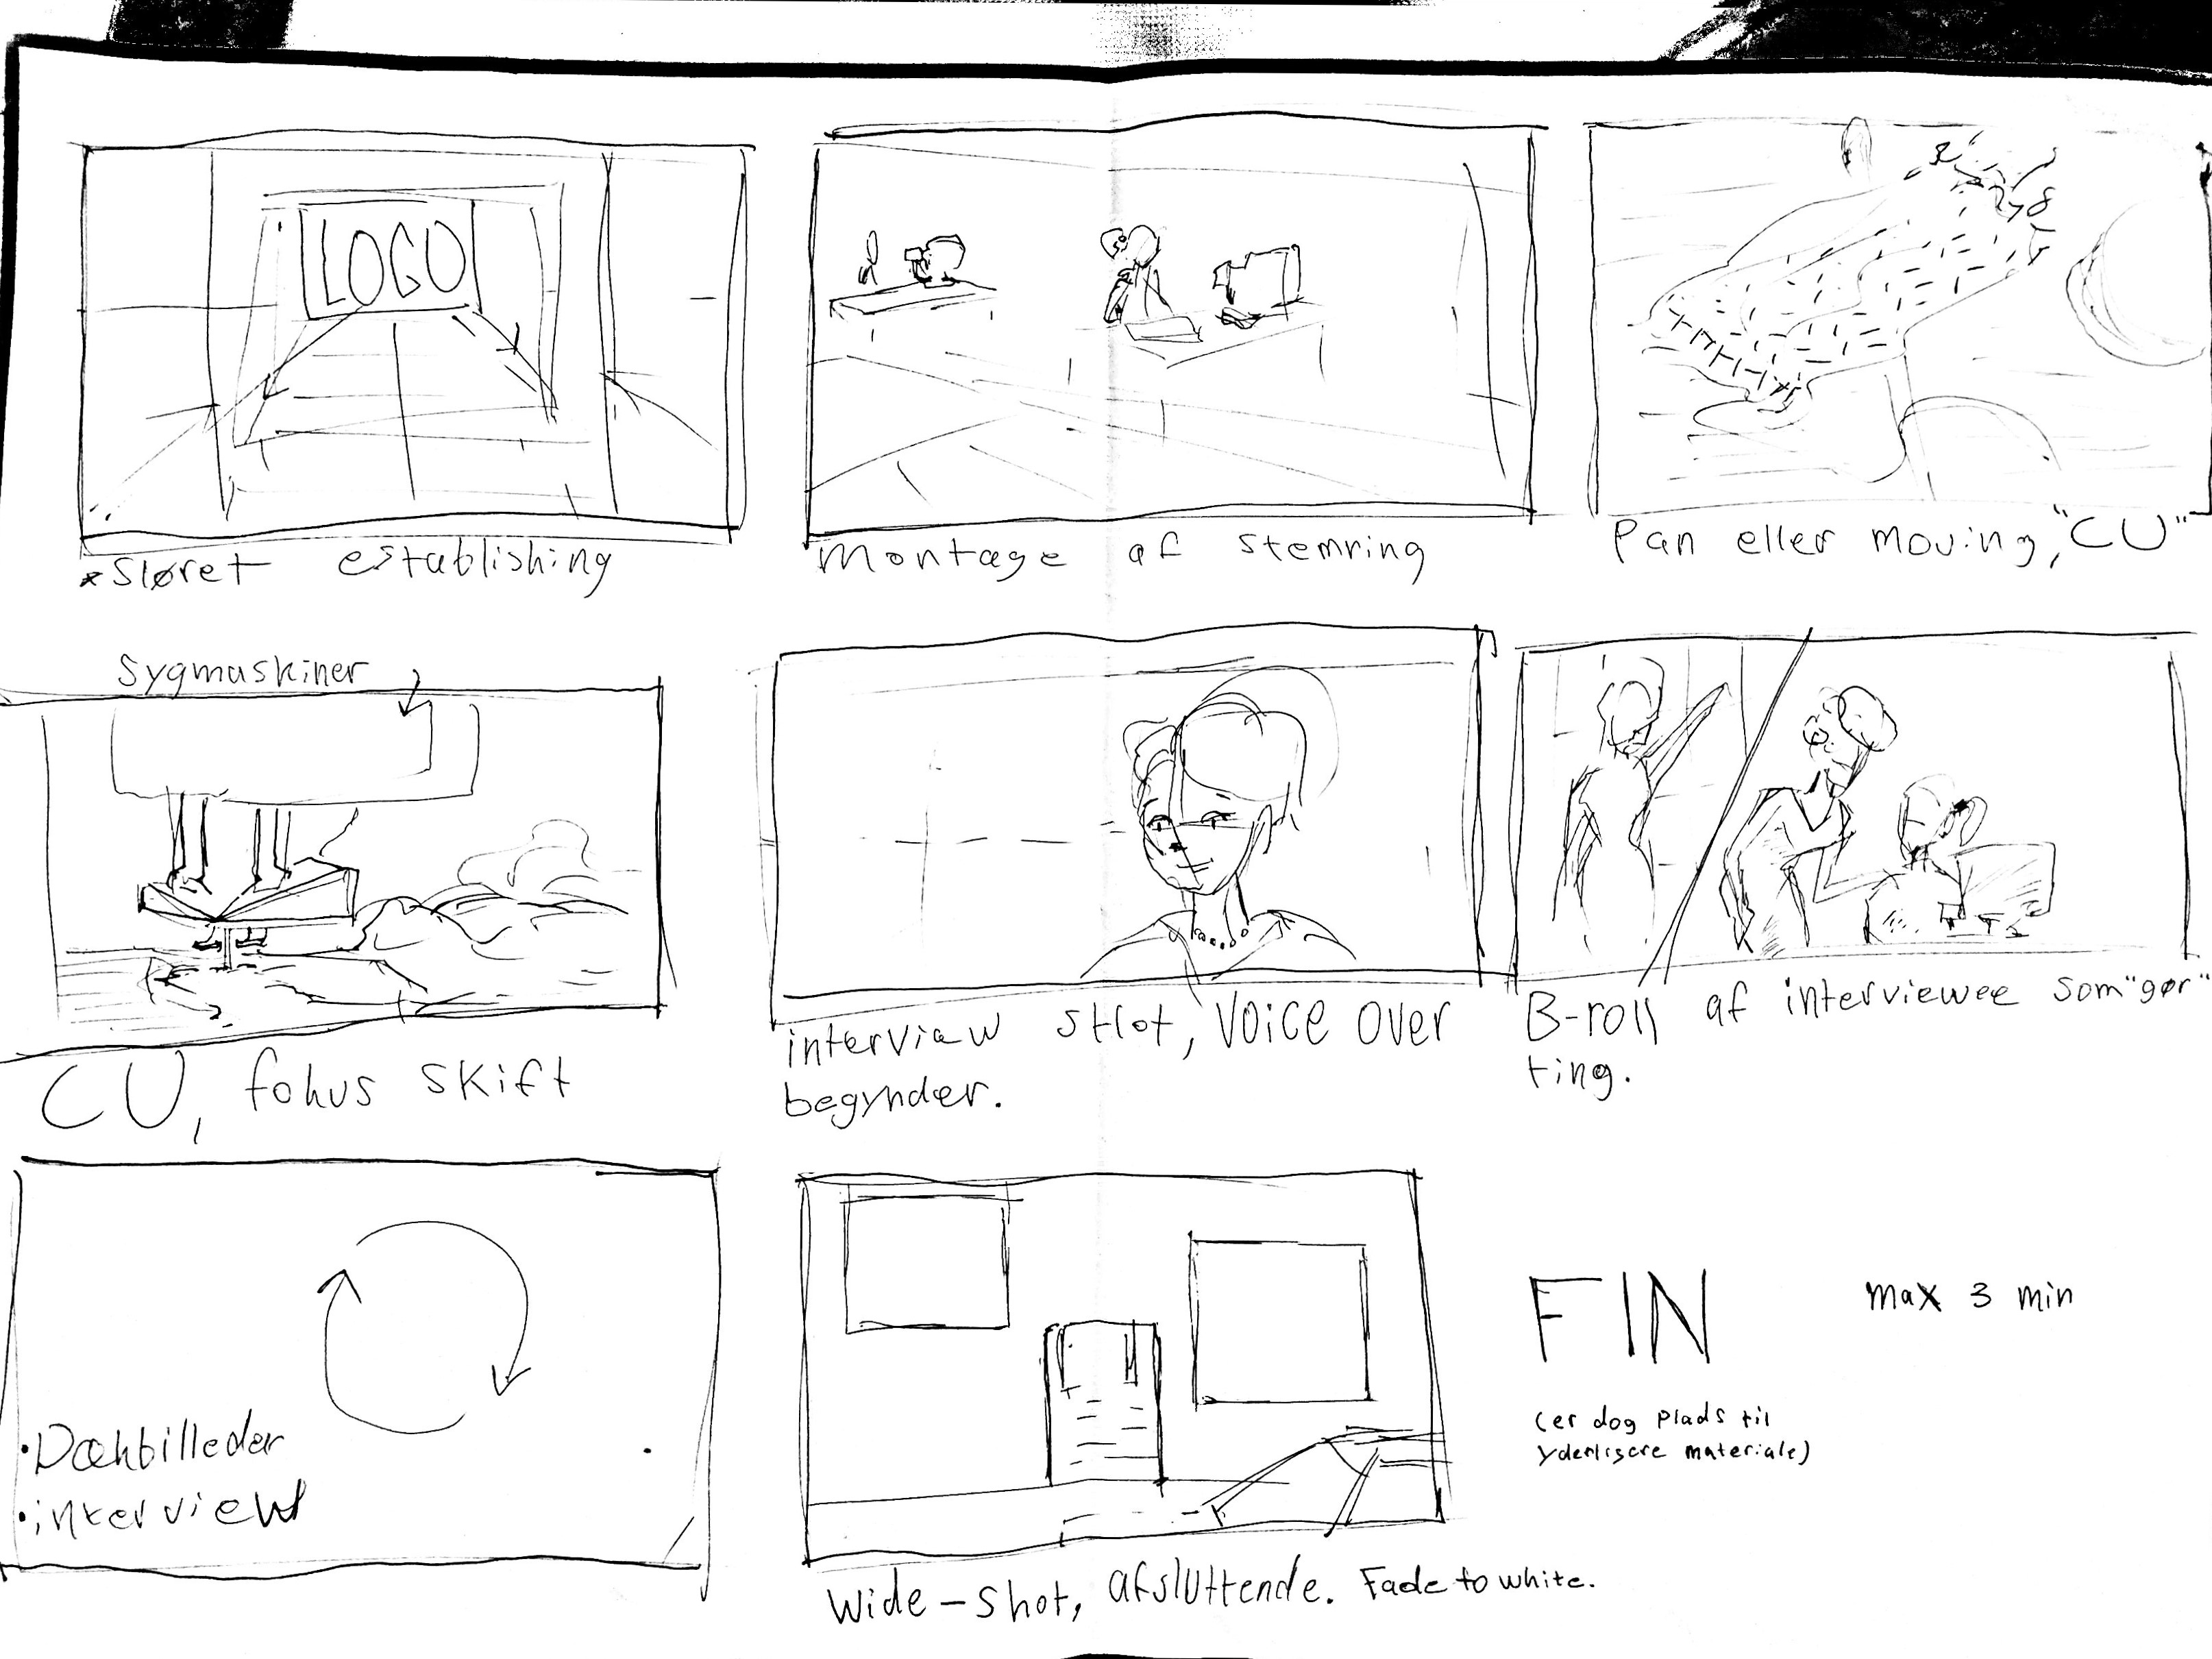 LOGO
*Sløret establishing
Montage af stemring
Pan eller moving, "CU"
Sygmaskiner
CU, fokus skift
interview shot, VOICE OVER
begynder.
B-roll af interviewee som "gør"
ting.
•Dækbilleder
•interview
Wide-shot, afsluttende. Fade to white.
FIN
max 3 min
(er dog plads til
yderligere materiale)